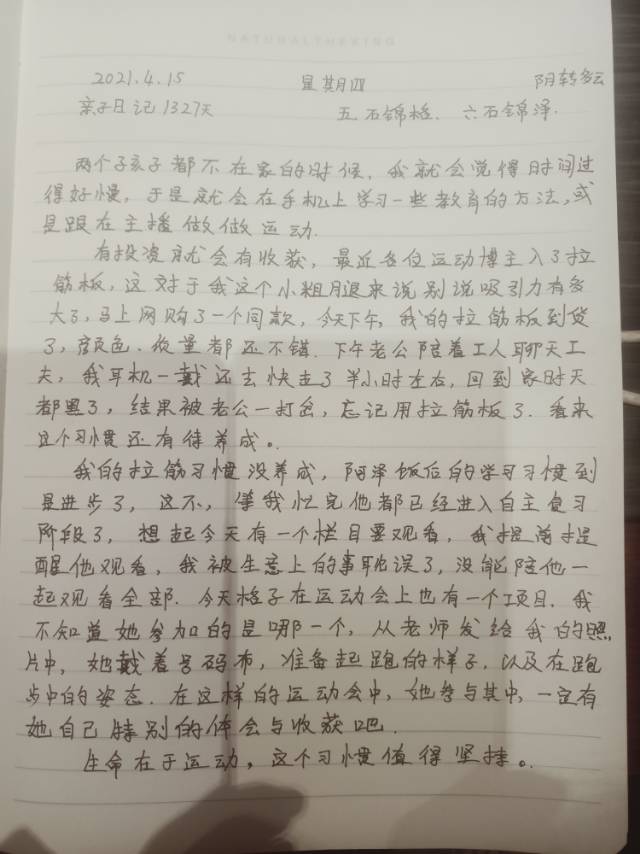 NATURALTHEKING
2021.4.15 星期四 阴转多云
亲子日记1327天 五石锦格. 六石锦泽.
两个孩子都不在家的时候, 我就会觉得时间过
得好慢, 于是就会在手机上学习一些教育的方法, 或
是跟在主播做做运动.
有投资就会有收获, 最近各位运动博主入了拉
筋板, 这对于我这个小粗腿来说别说吸引力有多
大了, 马上网购了一个同款, 今天下午, 我的拉筋板到货
了, 颜色. 质量都还不错. 下午老公陪着工人聊天工
夫, 我耳机一戴还去快走了半小时左右, 回到家时天
都黑了, 结果被老公一打岔, 忘记用拉筋板了. 看来
这个习惯还有待养成。
我的拉筋习惯没养成, 阿泽饭后的学习习惯到
是进步了, 这不, 等我忙完他都已经进入自主复习
阶段了, 想起今天有一个栏目要观看, 我提前提
醒他观看, 我被生意上的事耽误了, 没能陪他一
起观看全部. 今天格子在运动会上也有一个项目. 我
不知道她参加的是哪一个, 从老师发给我的照
片中, 她戴着号码布, 准备起跑的样子, 以及在跑
步中的姿态. 在这样的运动会中, 她参与其中, 一定有
她自己特别的体会与收获吧.
生命在于运动, 这个习惯值得坚持。